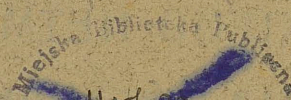 Miejska Biblioteka Publiczna